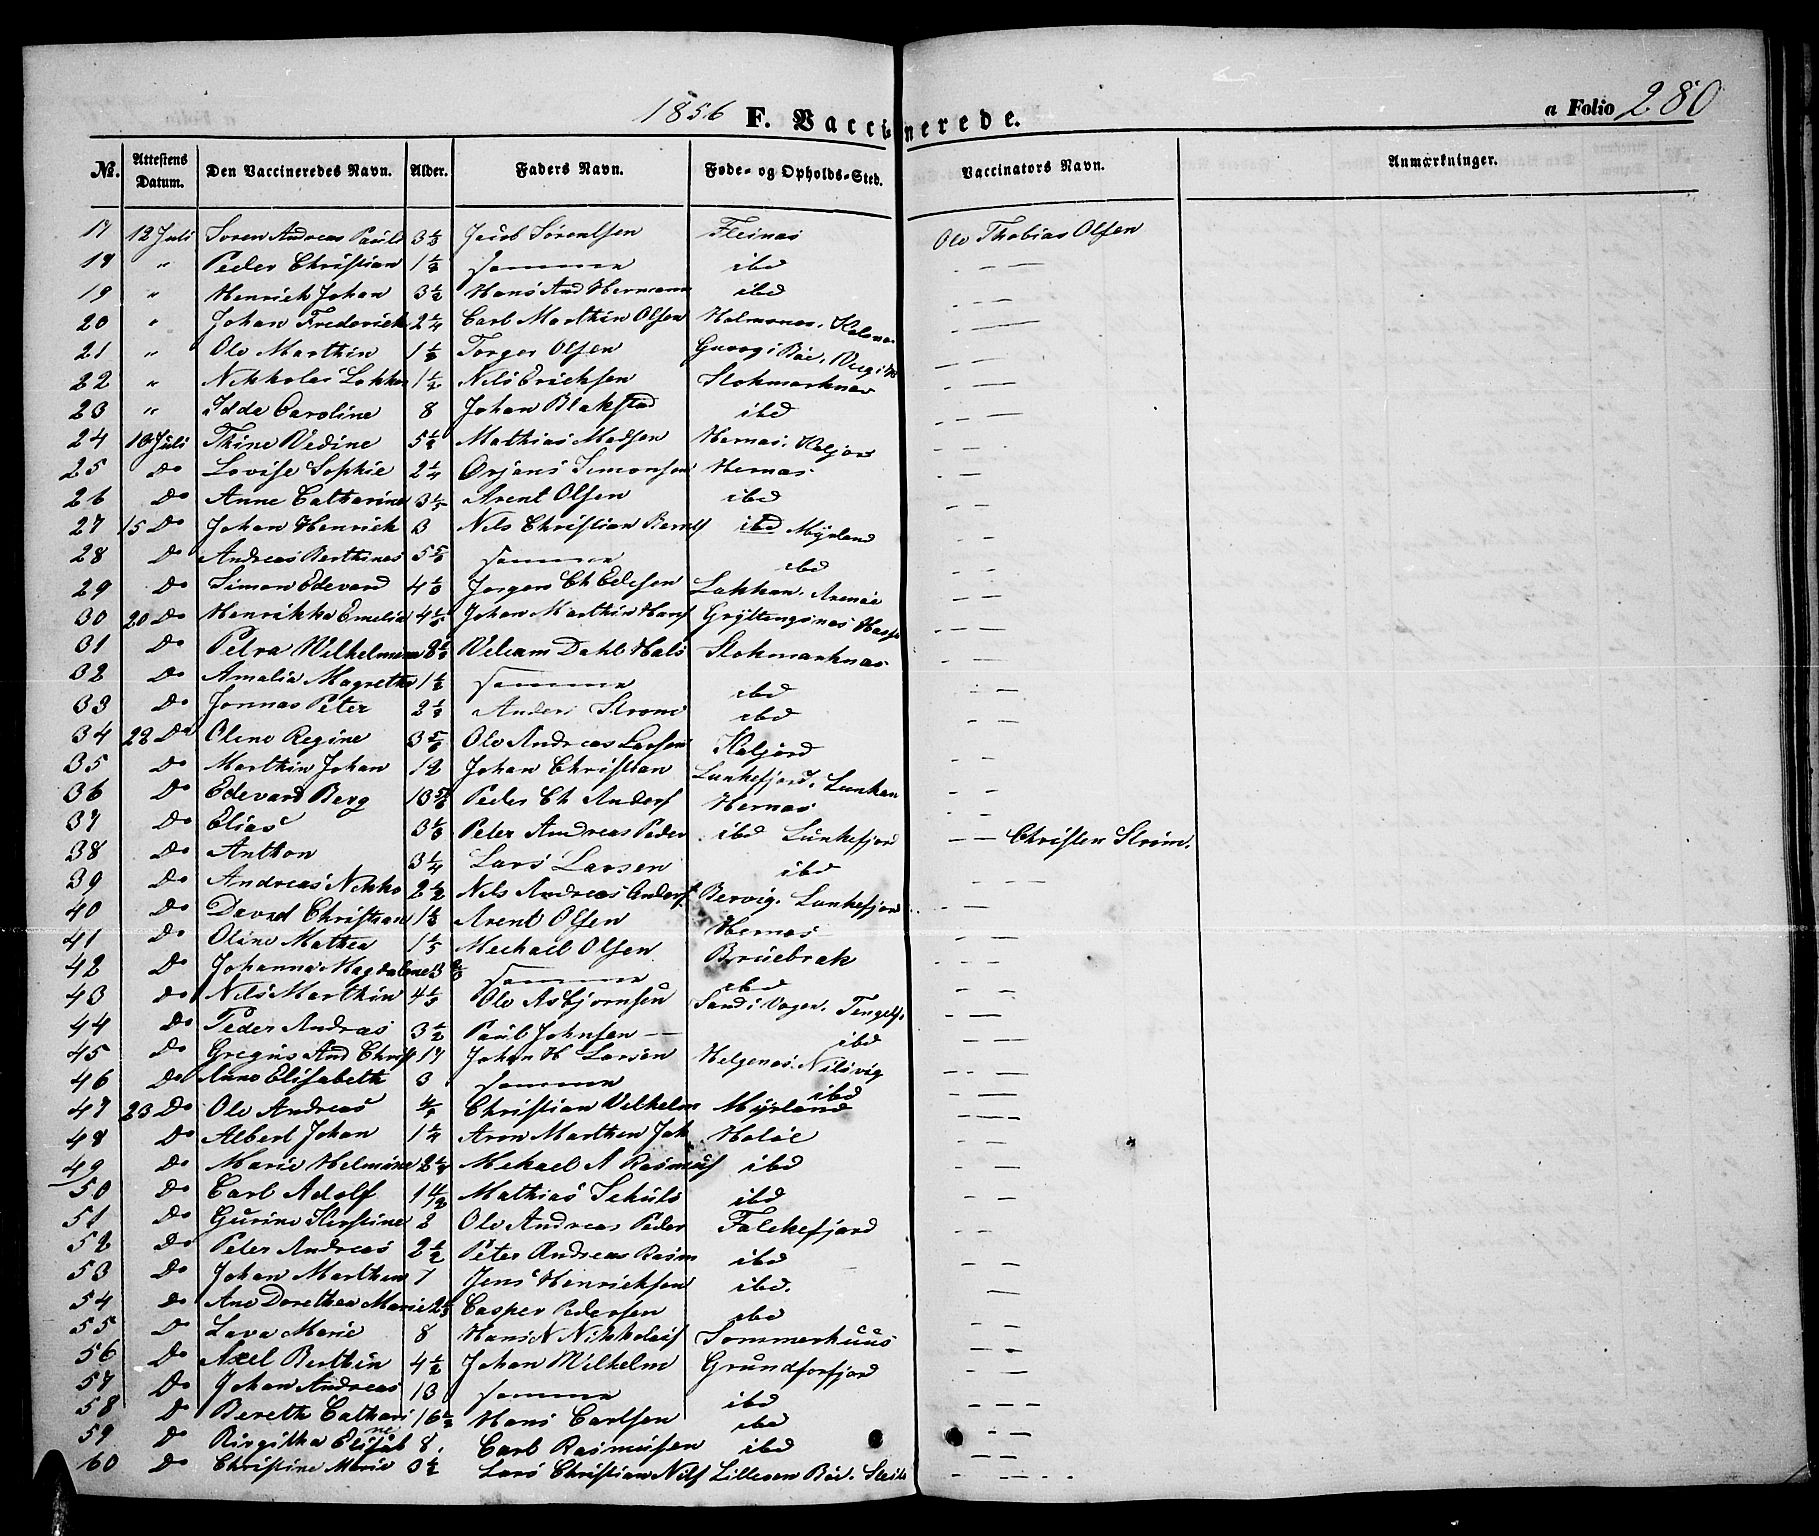 1856 F. Vaccinerede. a Folio 280
No. Attestens Datum. Den Vaccineredes Navn. Alder. Faders Navn. Føde- og Opholds-Sted. Vaccinators Navn. Anmærkninger.
17 12 Juli Soren Andreas Pauls Jacob Sørentsen Fleines Ole Thobias Olsen
18 " Peder Christian 1 1/2 Samme ibd — — —
19 " Henrich Johan 3 1/2 Hans And Hermann ibd — — —
20 " Johan Frederick 2 1/4 Carl Marthin Olsen Holmsnes. — — —
21 " Ole Marthin Torger Olsen — — —
22 " Nikkolai 1 1/2 Nils Erichsen Stokmarknæs — — —
23 " Idde Caroline 8 Johan Blakstad ibd — — —
24 Juli Thine Vedine Mathias Madsen Hernæs. — — —
25 Do Lovise Sophie 2 1/4 Orjans Simonsen Hernæs — —
26 Do Anne Catharine 3 1/5 Arent Olsen ibd — — —
27 15 Do Johan Henrich 3 Nils Christian Bernts ibd Myrland — — —
28 Do Andreas Berthines Samme ibd — — —
29 Do Simon Edevard Jorgen Ch Edisen — — —
30 20 Do Henrikka Emelia 4 1/5 Johan Marthin Hans Gryttingsnes — — —
31 Do Petra Wilhelmina Veliam Dahl Hals Stokmarknæs — — —
32 Do Amalia Magrethe 1 1/2 Samme ibd — —
33 Do Jonnas Peter Anders Strøm ibd — —
34 22 Do Oline Regine Ole Andreas Larsen Kaljord — —
35 Do Marthin Johan 12 Johan Christian Lunkefjord. Lunkan — —
36 Do Edevard Berg Peder Ch Anders Hernæs — —
37 Do Elias 3 1/3 Peter Andreas Peder ibd Lunkefjord — — Christen Strøm.
38 Do Anthon 3 1/4 Lars Larsen ibd
39 Do Andreas Nikko 2 1/2 Nils Andreas Anders Bervig. Lunkefjor — — —
40 Do David Christian Arent Olsen Hernæs — —
41 Do Oline Mathea 1 1/5 Mechael Olsen Bruebrak — —
42 Do Johanna Magdalene 3 Samme ibd — —
43 Do Nils Marthin Ole Asbjornsen Sand i Vogen. Tengelf. — —
44 Do Peder Andras 3 1/2 Paul Johnsen ibd — —
45 Do Gregus And Christ 17 Johan H Larsen Helgenæs. Nilsvig — —
46 Do Anne Elisabeth 3 Samme ibd — —
47 23 Do Ole Andreas Christian Vilhelm Myrland — — —
48 Do Albert Johan 1 1/4 Aron Marthen Joh Holøe — — —
49 Do Marie Helmine Mekael A Rasmus ibd — — —
50 Do Carl Adolf Mathias Schuls ibd — —
51 Do Gurine Kirstine 8 Ole Andreas Peder Falckefjord — —
52 Do Peter Andreas 2 1/2 Peter Andreas Rasm ibd — —
53 Do Johan Marthen 7 Jens Henrichsen ibd. — —
54 Do Ane Dorethea Marie Casper Pedersen ibd — — —
55 Do Lava Marie 8 Hans N Nikkolais Sommerhuus — —
56 Do Axel Berthin 4 1/2 Johan Wilhelm Grundforfjord — —
57 Do Johan Andreas 13 Samme ibd — — —
58 Do Bereth Catharine 16 1/2 Hans Carlsen ibd — — —
59 Do Birgitha Elisab 8. Carl Rasmusen ibd — — —
60 Do Christine Marie 3 1/2 Lars Christian Nils Lilleven Bøe. — — —